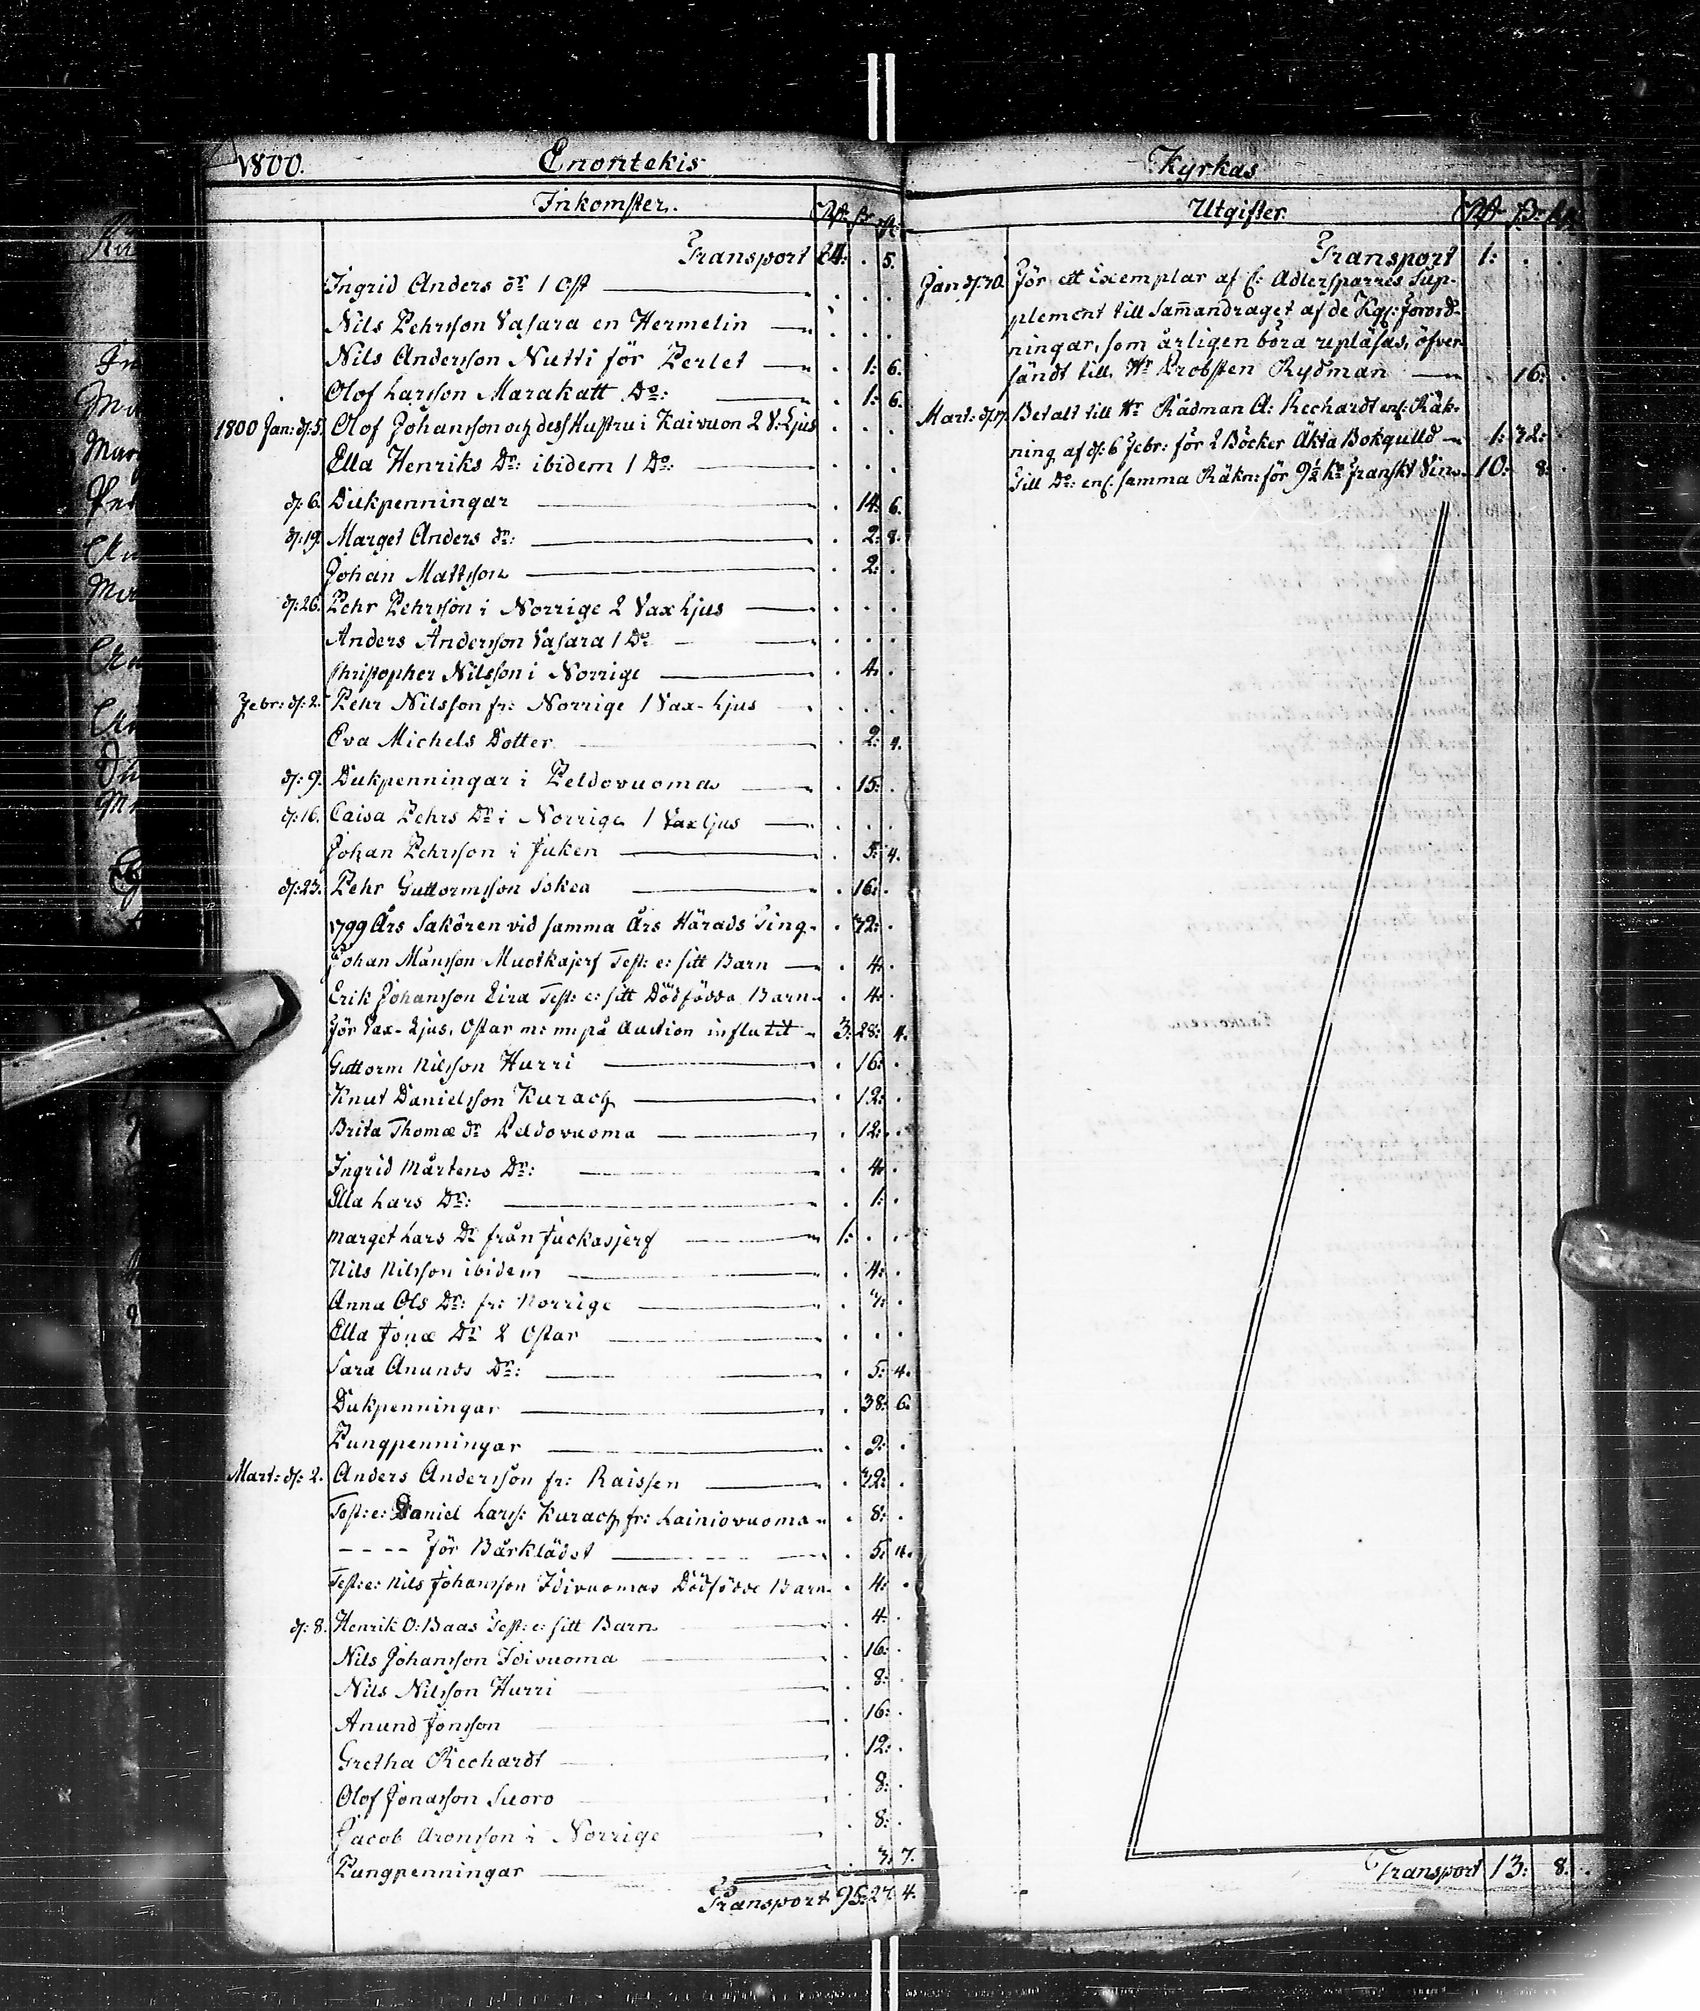 1800. Enontekis
Inkomster. Rd. ß r:
Transport 24: . 5.
Ingrid Anders dr 1 Ost . . .
Nils Pehrsson Vasara en Hermelin . . .
Nils Andersson Nutti för Perlet . 1: 6.
Olof Larsson Marakatt Do: . 1: 6.
1800 Jan: d: 5. Olof Johansson och dess Hustru i Kaivuon 2 V: Ljus . . .
Ella Henriks Dr: ibidem 1 Do: . . .
d: 6. Dukpenningar . 14: 6.
d: 19. Marget Anders dr: . 2: 8.
Johan Mattsson . 2: .
d: 26. Pehr Pehrsson i Norrige 2 Vax Ljus . . .
Anders Andersson Vasara 1 Do . . .
Christopher Nilsson i Norrige . 4. .
Febr: d: 2. Pehr Nilsson fr: Norrige 1 Vax-Ljus . . .
Eva Michels Dotter . 2: 4.
d: 9. Dukpenningar i Peldovuoma . 15: .
d: 16. Caisa Pehrs Dr i Norrige 1 Vaxljus . . .
Johan Pehrsson i Juken . 5: 4.
d: 23. Pehr Guttormsson Sokea . 16: .
1799 Års Saköron vid samma Års Härads Ting . 32: .
Johan Månsson Muotkajerf Test: e: sitt Barn . 4. .
Erik Johansson Eira Test: e: sitt Dödfödda Barn . 4: .
För Vax-Ljus, Ostar m: m: på Auction influtit 3: 28: 4.
Guttorm Nilsson Hurri . 16: .
Knut Danielsson Kurach . 12: .
Brita Thomæ dr Peldovuoma . 12: .
Ingrid Mårtens Dr: . 4. .
Ella Lars Dr: . 1: .
Marget Lars Dr från Juckasjerf 1: . .
Nils Nilsson ibidem . 4: .
Anna Ols Dr: fr: Norrige
Ella Jonæ Dr 2 Ostar . . .
Sara Anunds Dr: . 5: 4.
Dukpenningar . 38: 6.
Pungpenningar . 9: .
Mart: d: 2. Anders Andersson fr: Raissen . 32: .
Test: e: Daniel Larss: Kurach fr: Lainiovuoma . 8: .
- - - - för Bårklädet . 5: 4.
Test: e: Nils Johansson Idivuomas Dödfödde Barn . 4: .
d: 8. Henrik O: Baas Test: e: sitt Barn . 4: .
Nils Johansson Idivuoma . 16: .
Nils Nilsson Hurri . 8: .
Anund Jonsson . 16: .
Gretha Rechardt . 12: .
Olof Jonasson Suoro . 8: .
Jacob Aronsson i Norrige . 8: .
Pungpenningar . 3: 7.
Transport 95: 27. 4.
Kyrkas
Utgifter Rd ß
Transport 1: . .
Jan d: 30. För ett Exemplar af C: Adlersparres Sup-
plement till Samandraget af de Kgl: Förord-
ningar, som årligen böra uplåsas, öfver-
sändt till Hr Probsten Rydman . 16: .
Mart: d: 17. Betalt till Hr Rådman A: Rechardt enl: Räk-
ning af d: 6 Febr: för 2 Böcker Äkta Bokgulld 1: 32: .
Till Do: enl: samma Räkn: för 9½ Kr Franskt Vin 10: 8: .
Transport 13: 8: .